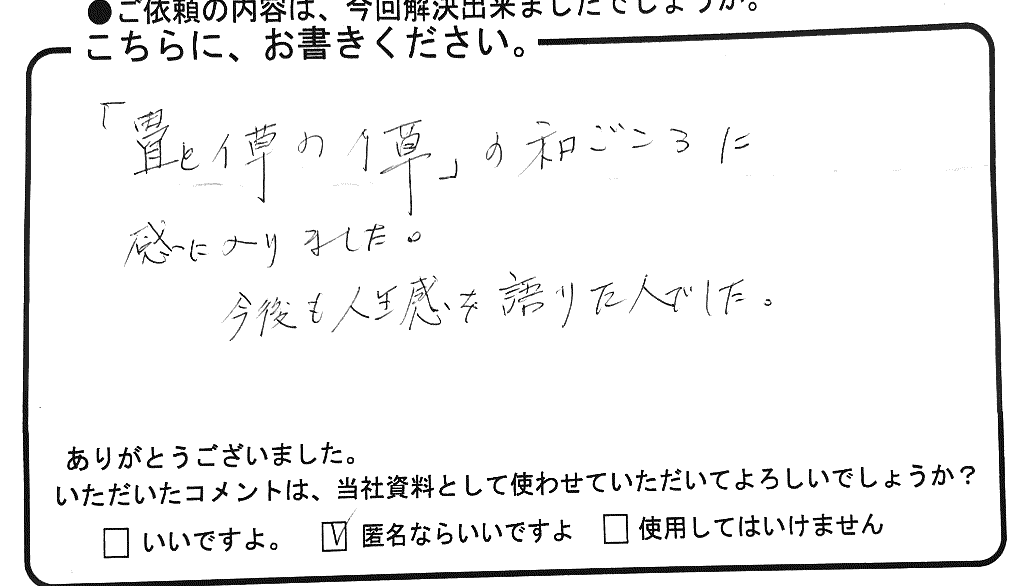 ●ご依頼の内容は、今回解決出来ましたでしょうか。
こちらに、お書きください。
「畳と偉草の偉草」の和ごころに
感に入りました。
今後も人生感を語りた人でした。
ありがとうございました。
いただいたコメントは、当社資料として使わせていただいてよろしいでしょうか？
いいですよ。 匿名ならいいですよ 使用してはいけません